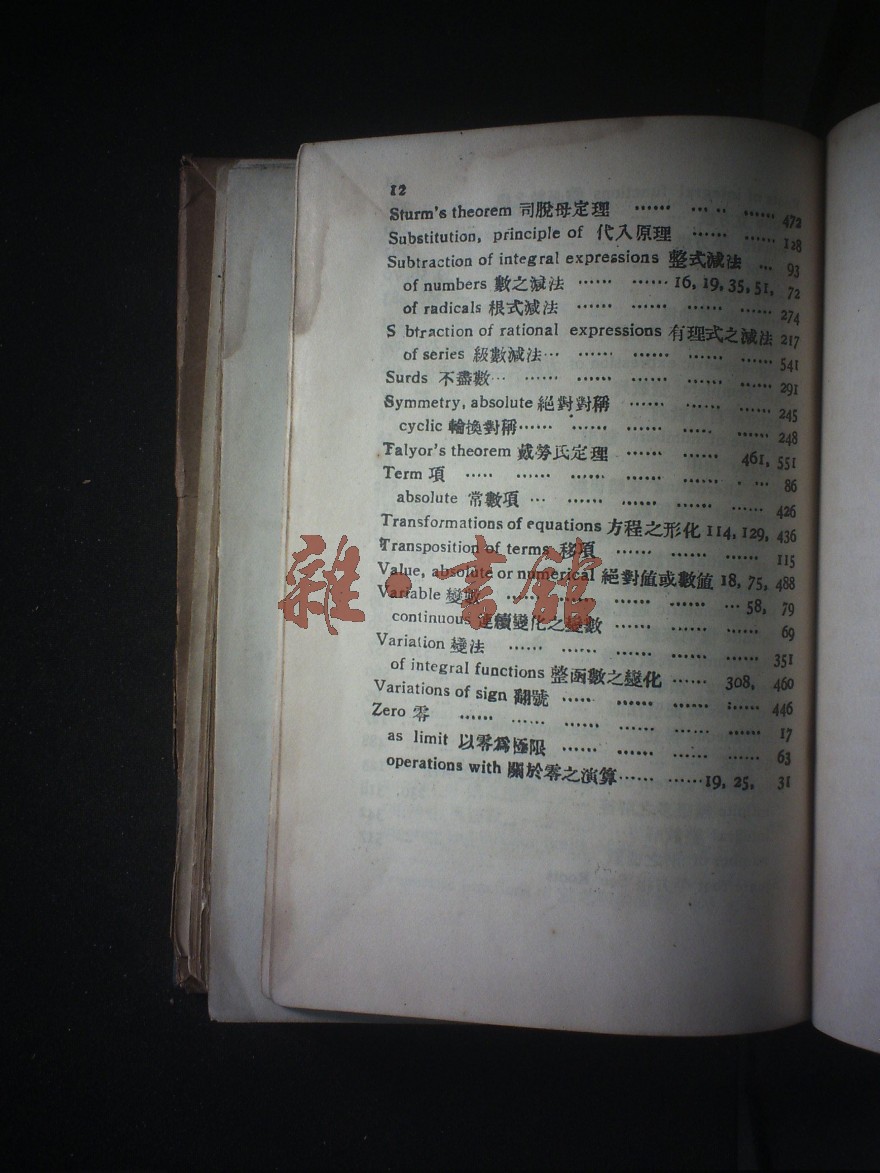 12
Sturm's theorem 司脫母定理 …… … .. …… 472
Substitution, principle of 代入原理 …… …… 128
Subtraction of integral expressions 整式減法 … 93
of numbers 數之減法 …… ……16, 19, 35, 51, 72
of radicals 根式減法 …… …… …… …… 274
S btraction of rational expressions 有理式之減法 217
of series 級數減法… …… …… …… …… 541
Surds 不盡數… …… …… …… …… …… 291
Symmetry, absolute 絕對對稱 …… …… …… 245
cyclic 輪換對稱…… …… …… …… …… 248
Talyor's theorem 戴勞氏定理 …… …… 461, 551
Term 項 ….. …… …… …… …… . … 86
absolute 常數項 … …… …… …… …… 426
Transformations of equations 方程之形化 114, 129, 436
Transposition of terms 移項 …… …… …… 115
Value, absolute or numerical 絕對值或數值 18, 75, 488
Variable 變數 …… …… …… …… … 58, 79
continuous 連續變化之變數 …… …… …… 69
Variation 變法 …… …… …… …… …… 351
of integral functions 整函數之變化 …… 308, 460
Variations of sign 翻號 ….. …… …… …… 446
Zero 零 …… …… …… …… …… 17
as limit 以零爲極限 …… …… …… …… 63
operations with 關於零之演算…… ……19, 25, 31
雜·書館